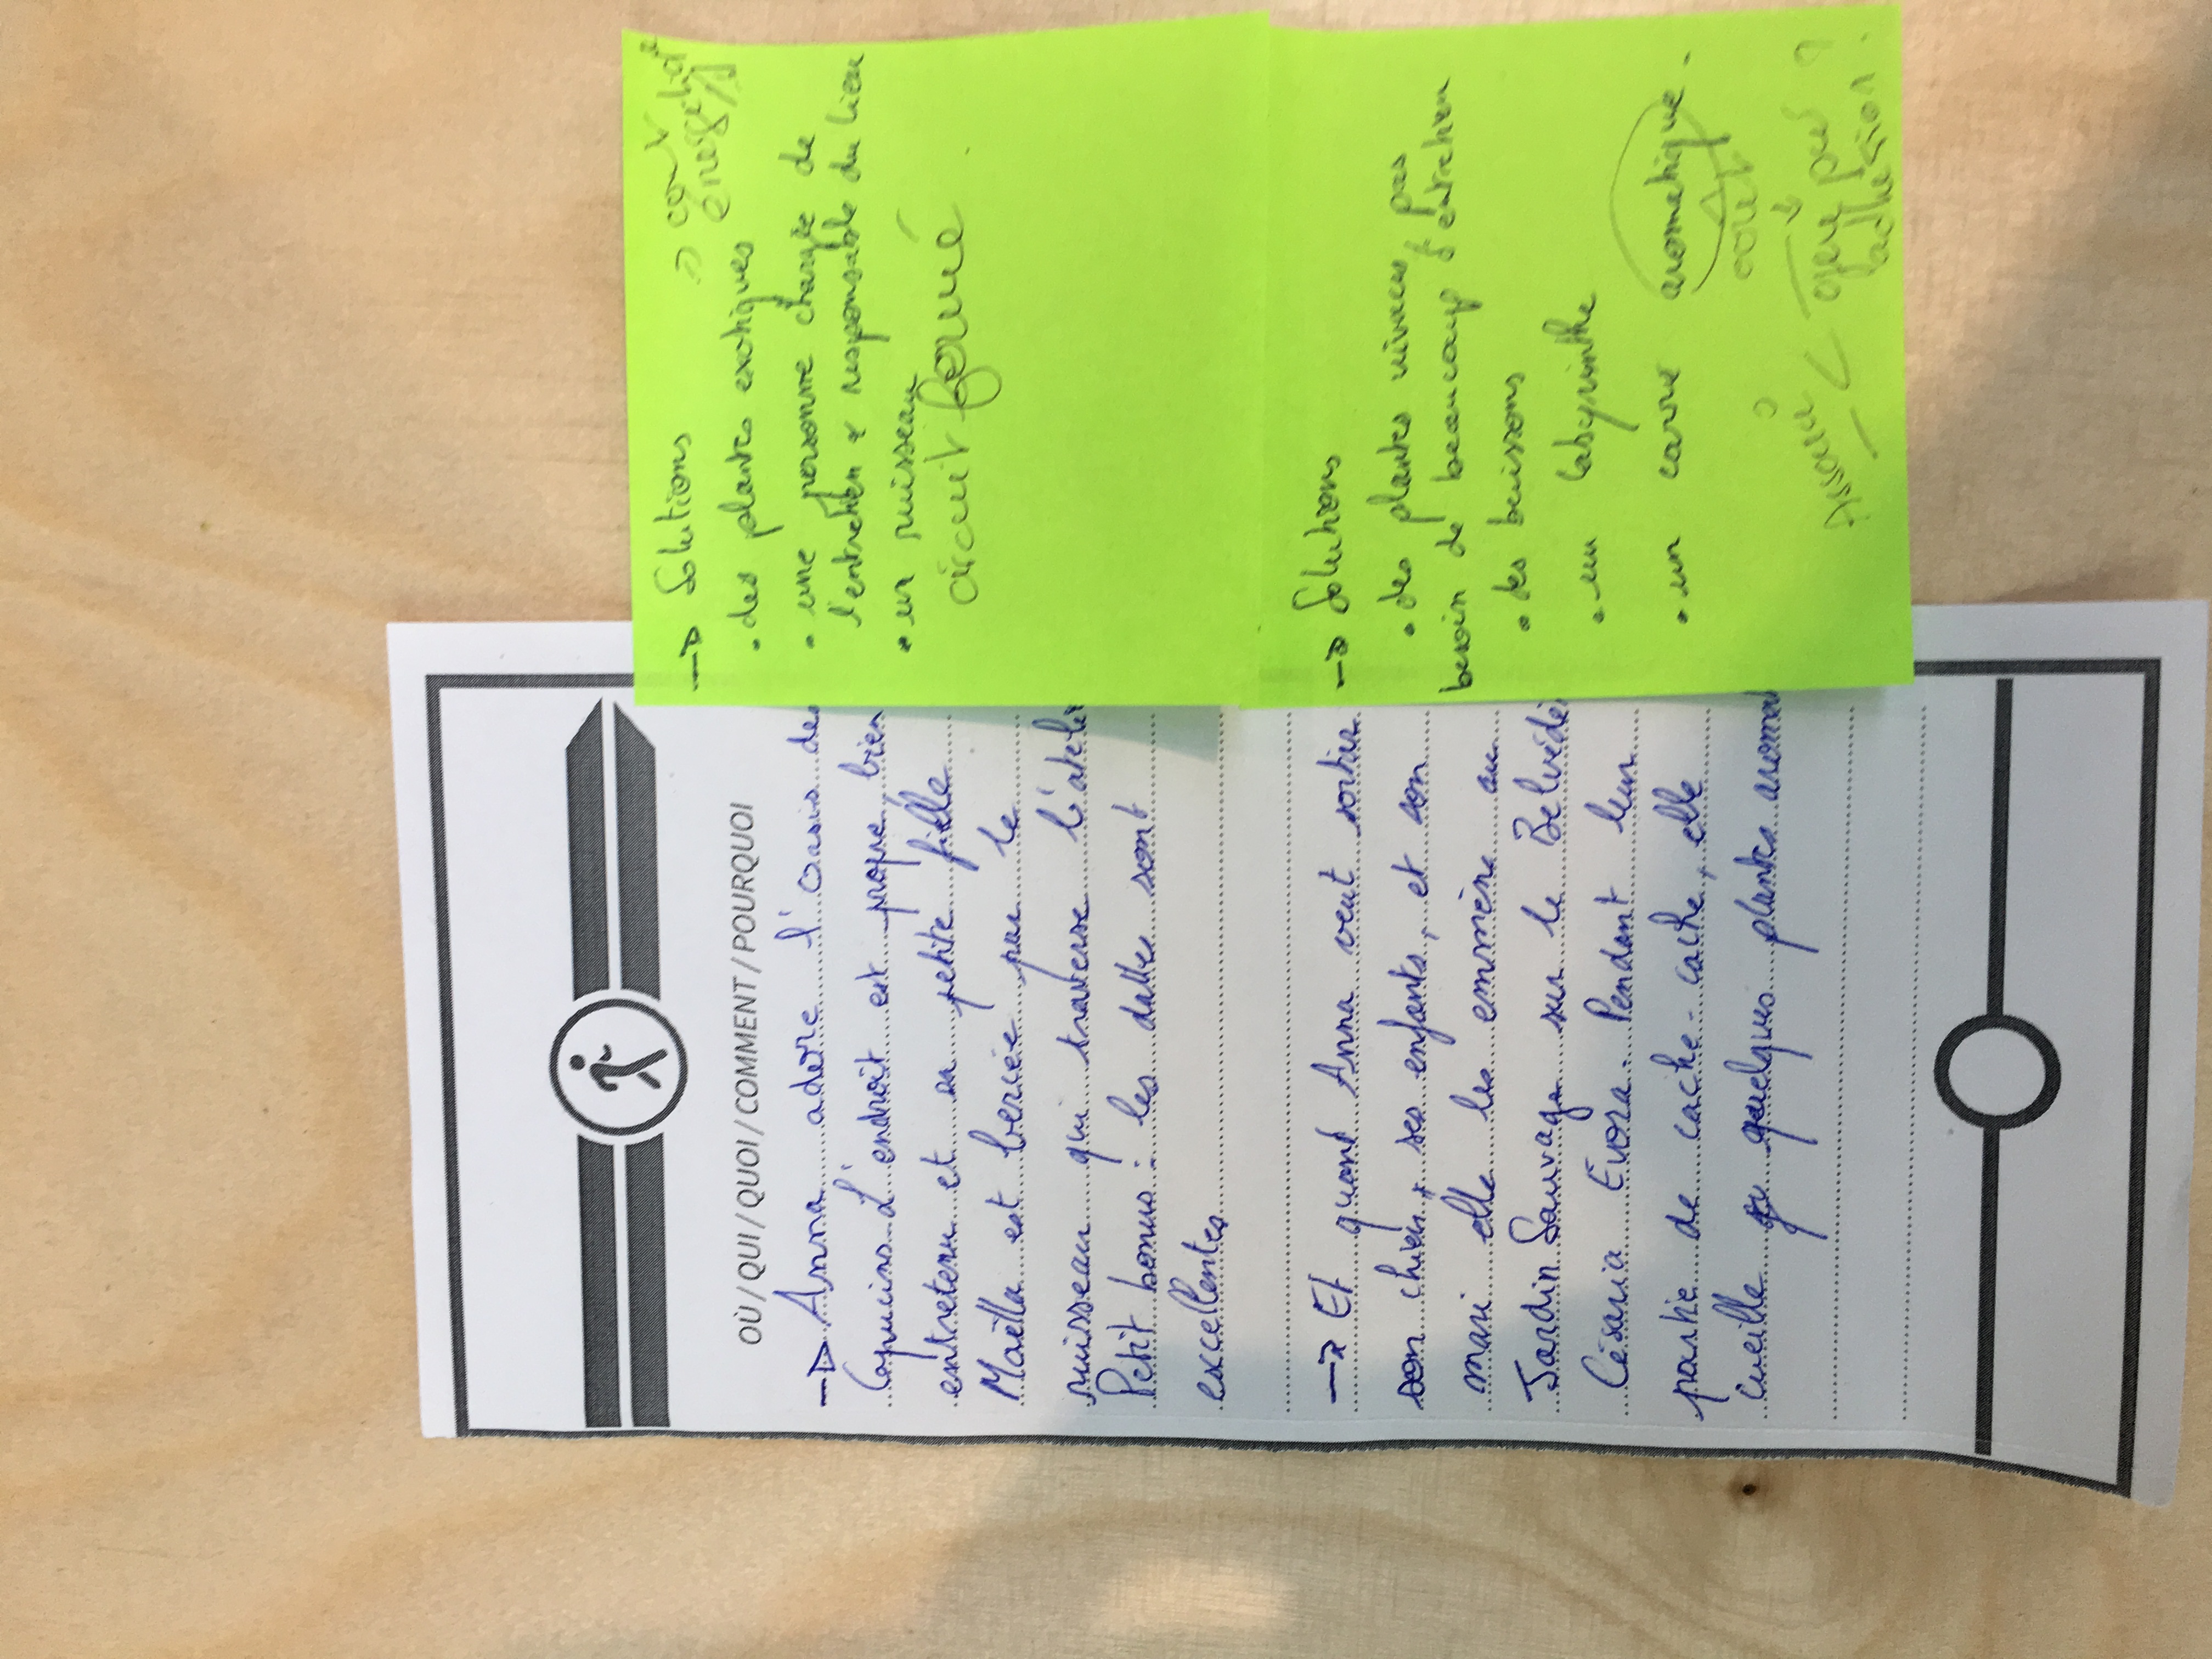 OÙ / QUI / QUOI / COMMENT / POURQUOI
→ Anna adore l'Oasis des
Capucins. L'endroit est propre, bien
entretenu et sa petite fille
Maëlla est bercée par le
ruisseau qui traverse l'atelier
Petit bonus : les dattes sont
excellentes
→ Et quand Anna veut sortir
son chien, ses enfants, et son
mari elle les emmène au
Jardin Sauvage sur le Belvédè
Césaria Evora. Pendant leur
partie de cache-cache, elle
cueille quelques plantes aromat
→ Solutions
• des plantes exotiques
• une personne chargée de
l'entretien & responsable du lieu
• un ruisseau
circuit fermé
→ Solutions
• des plantes vivaces pas
besoin de beaucoup d'entretien
• des buissons
• un labyrinthe
• un carré aromatique.